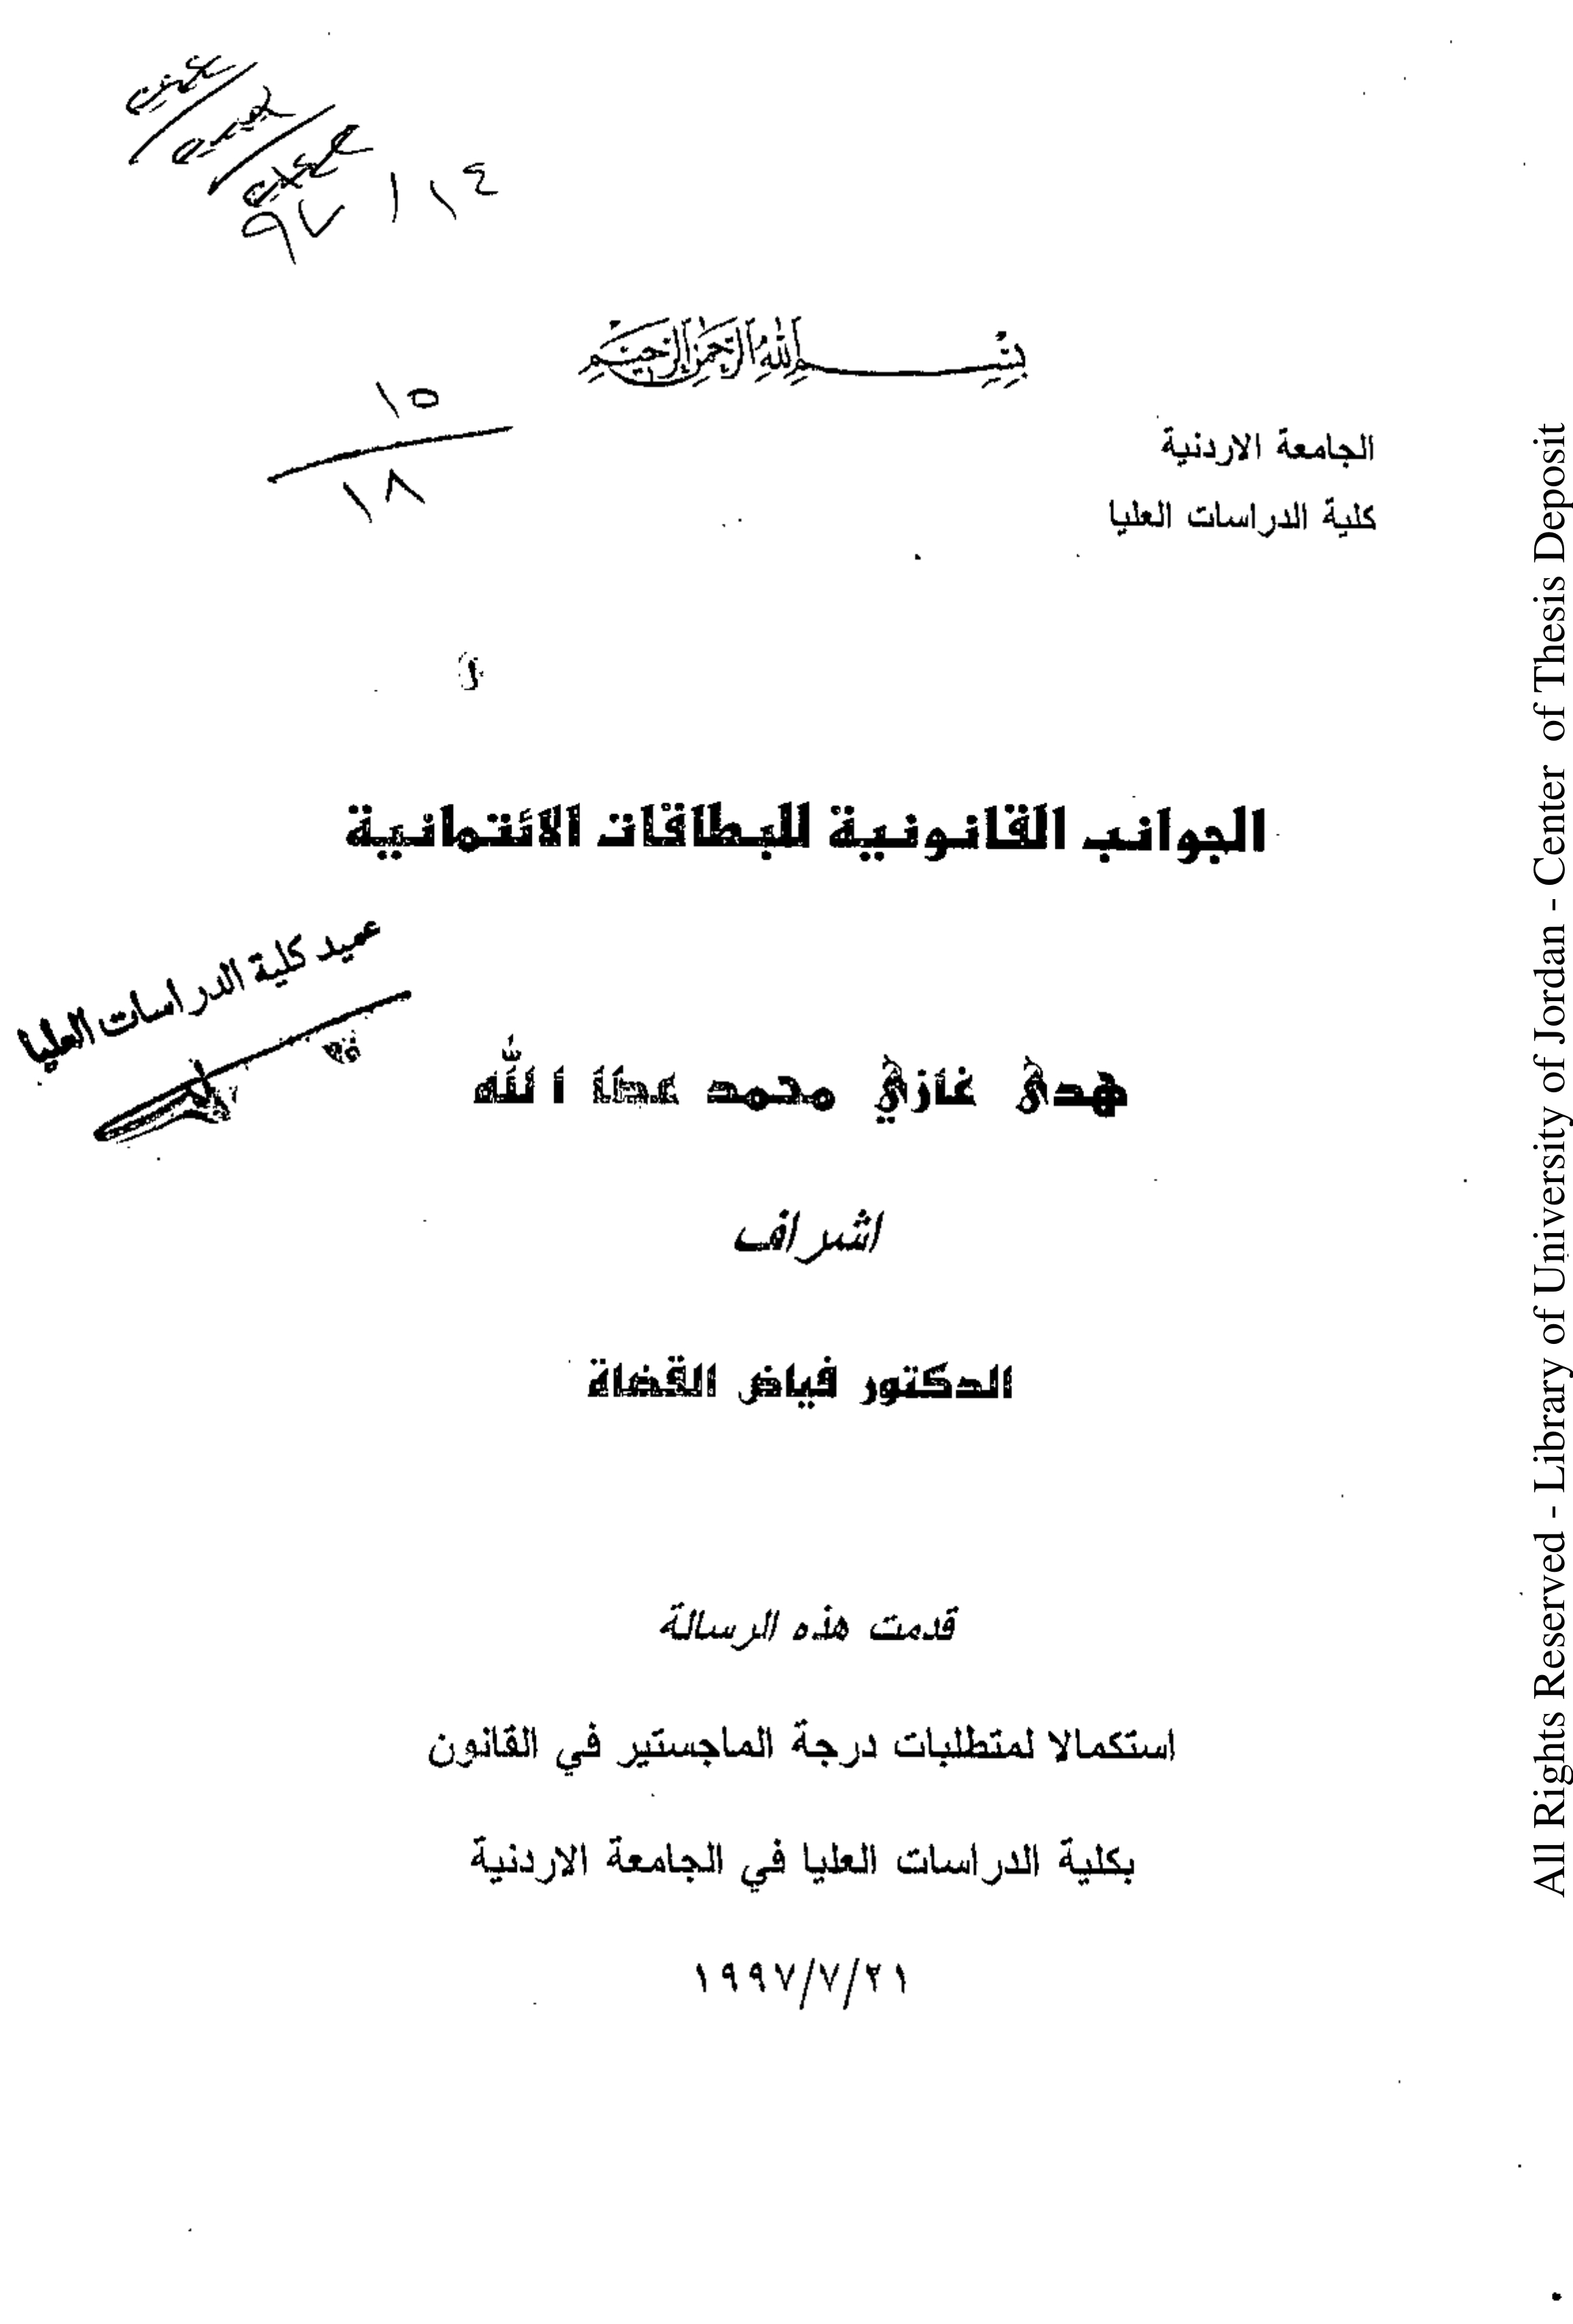 بسم الله الرحمن الرحيم
١٥
١٨
الجامعة الاردنية
كلية الدراسات العليا
الجوانب القانونية للبطاقات الائتمانية
عميد كلية الدراسات العليا
هدى غازي محمد عطا الله
اشراف
الدكتور فياض القضاة
قدمت هذه الرسالة
استكمالا لمتطلبات درجة الماجستير في القانون
بكلية الدراسات العليا في الجامعة الاردنية
١٩٩٧/٧/٢١
All Rights Reserved - Library of University of Jordan - Center of Thesis Deposit